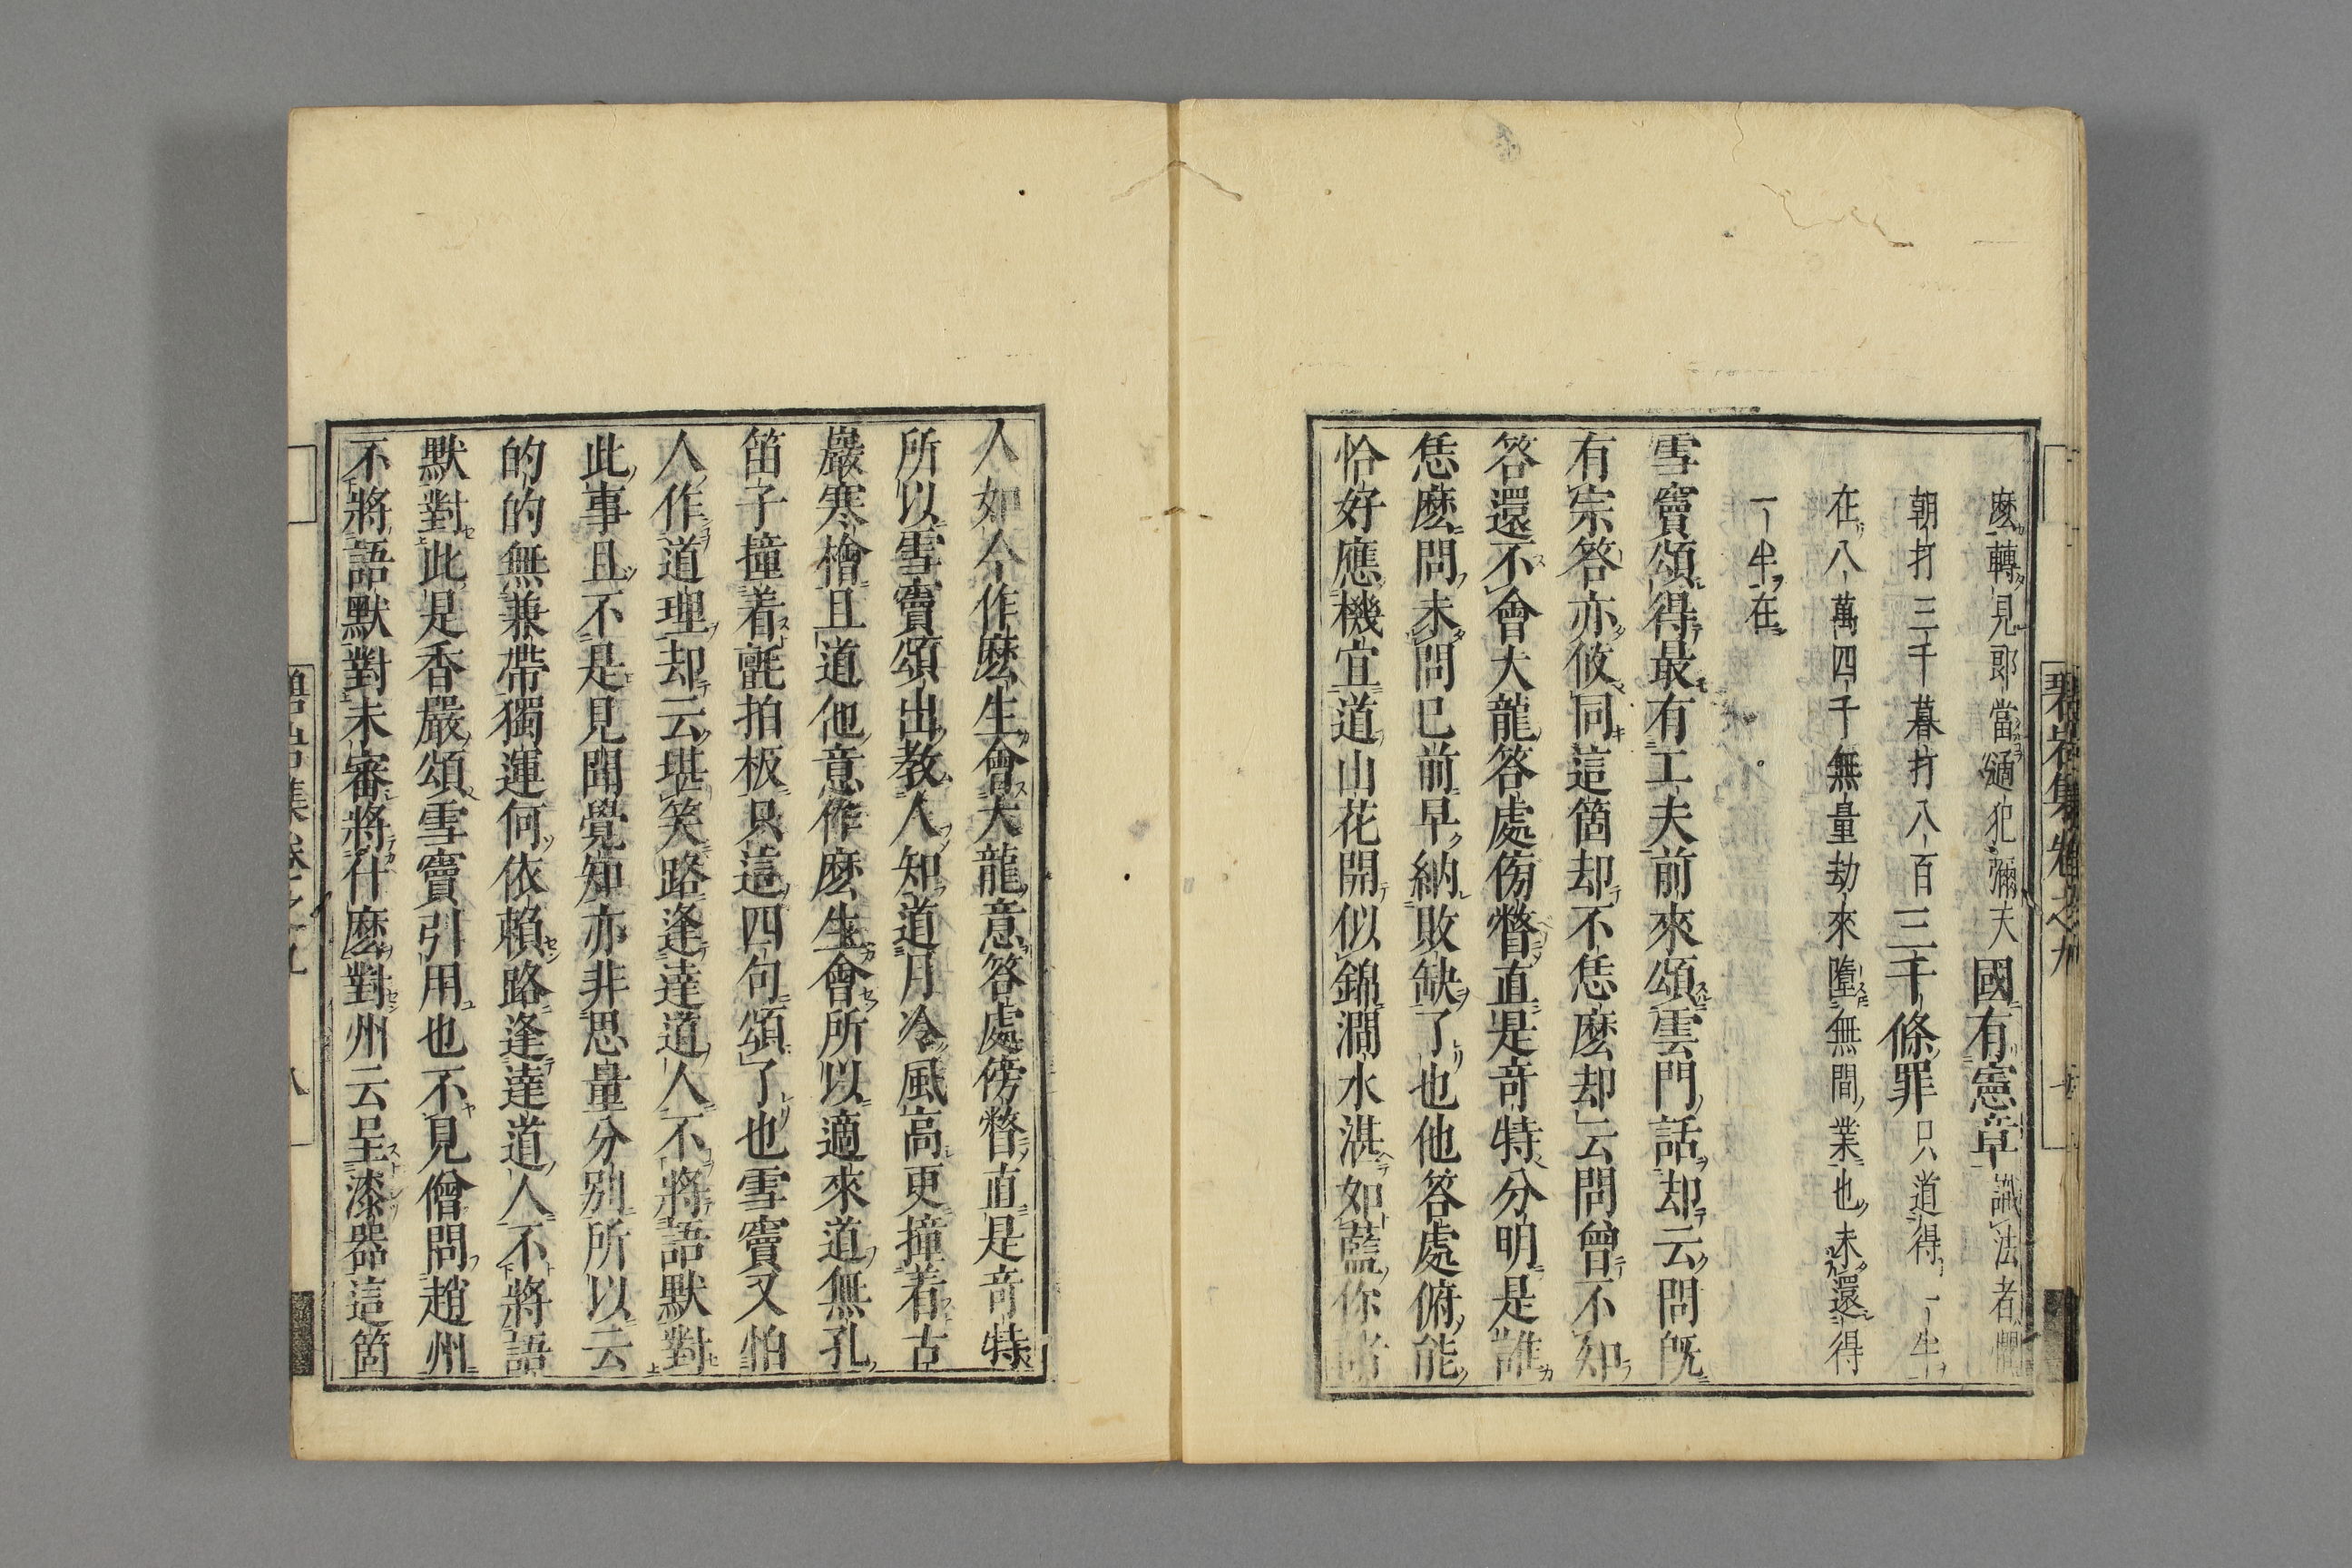 碧巖集卷之九
麼轉見郎當過犯彌天國有憲章識法者懼
朝打三千暮打八百三千條罪只道得一半
在八萬四千無量劫來墮無間業也未還得
一半在
雪竇頌得最有工夫前來頌雲門話却云問既
有宗答亦攸同這箇却不恁麼却云問曾不知
答還不會大龍答處傍瞥直是奇特分明是誰
恁麼問未問已前早納敗缺了也他答處俯能
恰好應機宜道山花開似錦澗水湛如藍你諸
人如今作麼生會大龍意答處傍瞥直是奇特
所以雪竇頌出教人知道月冷風高更撞着古
巖寒檜且道他意作麼生會所以適來道無孔
笛子撞着氈拍板只這四句頌了也雪竇又怕
人作道理却云堪笑路逢達道人不將語默對
此事且不是見聞覺知亦非思量分別所以云
的的無兼帶獨運何依賴路逢達道人不將語
默對此是香嚴頌雪竇引用也不見僧問趙州
不將語默對未審將什麼對州云呈漆器這箇
集卷之九
八